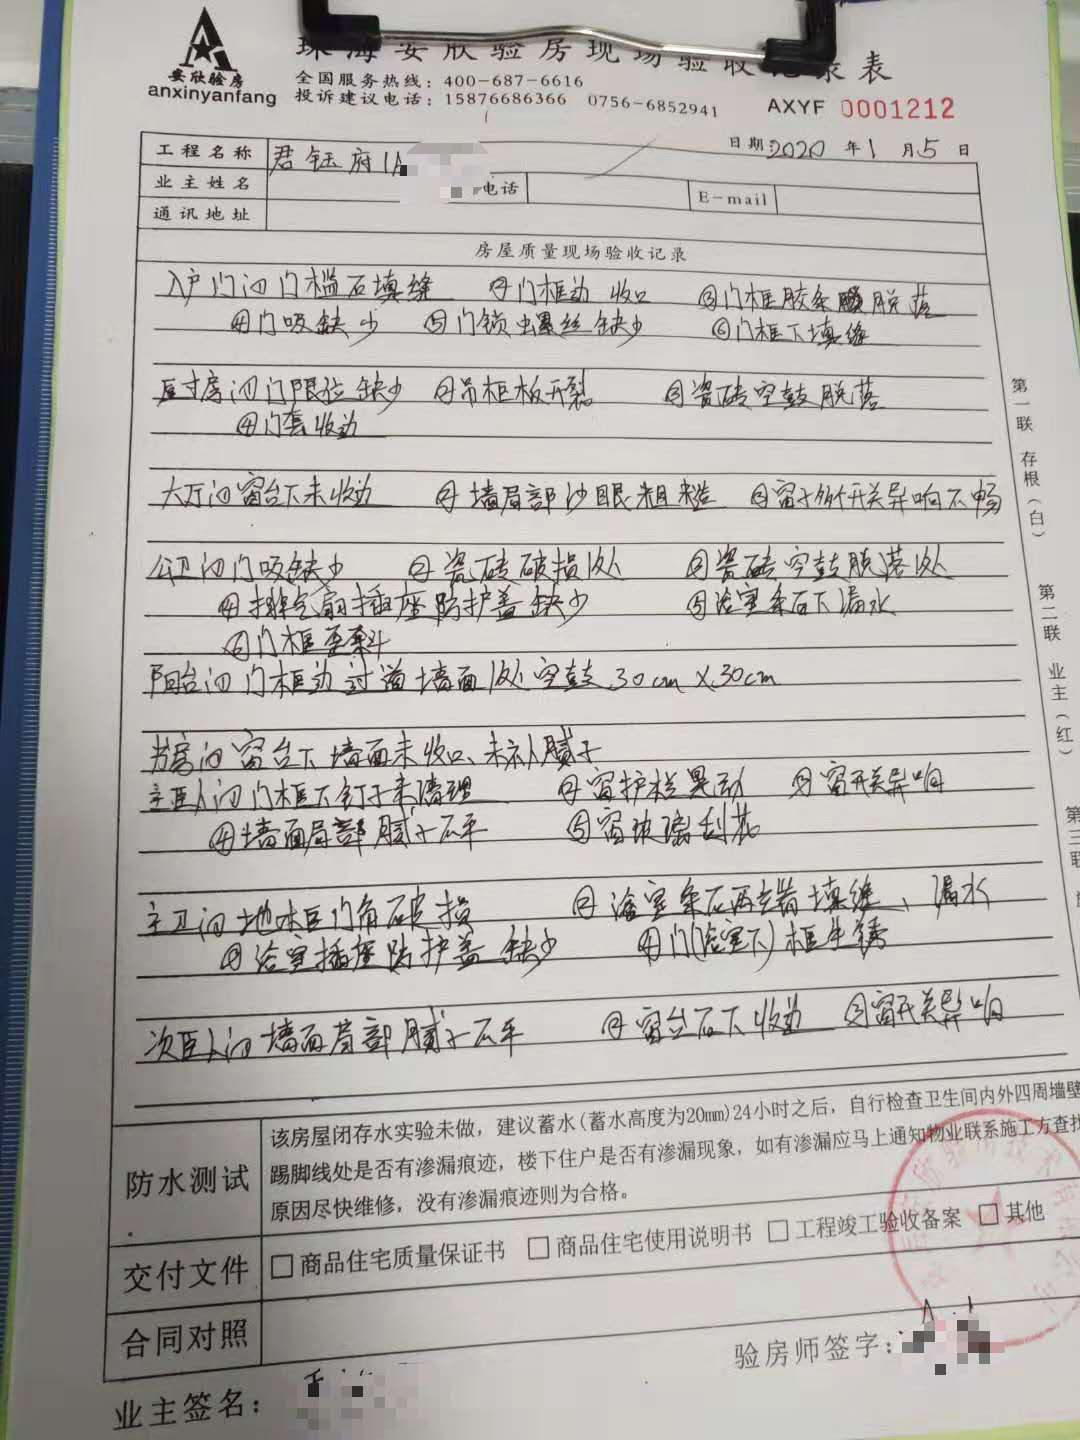 珠海安欣验房现场验收记录表
安欣验房
anxinyanfang
全国服务热线：400-687-6616
投诉建议电话：15876686366 0756-6852941
AXYF 0001212
日期：2020 年 1 月 5 日
工程名称 君钰府 1A
业主姓名 电话 E-mail
通讯地址
房屋质量现场验收记录
入户门①门槛石填缝 ②门框边 收口 ③门框胶条 脱落
④门吸缺少 ⑤门锁螺丝缺少 ⑥门框下填缝
厨房①门限位缺少 ②吊柜板开裂 ③瓷砖空鼓脱落
④门套收边
大厅①窗台下未收边 ②墙局部沙眼粗糙 ③窗 开关异响不畅
公卫①门吸缺少 ②瓷砖破损1处 ③瓷砖空鼓脱落1处
④排气扇插座防护盖缺少 ⑤浴室条石下漏水
⑥门框歪斜
阳台①门框边过道墙面1处空鼓30cm×30cm
书房①窗台下墙面未收口、未 腻子
主卧①门框下钉子未清理 ②窗护栏晃动 ③窗开关异响
④墙面局部腻子不平 ⑤窗玻璃刮花
主卫①地砖 门角破损 ②浴室条石两 填缝、漏水
③浴室插座防护盖缺少 ④门(浴室下)框生锈
次卧①墙面局部腻子不平 ②窗台石下收边 ③窗开关异响
防水测试
该房屋闭存水实验未做，建议蓄水(蓄水高度为20mm)24小时之后，自行检查卫生间内外四周墙壁
踢脚线处是否有渗漏痕迹，楼下住户是否有渗漏现象，如有渗漏应马上通知物业联系施工方查找
原因尽快维修，没有渗漏痕迹则为合格。
交付文件 □商品住宅质量保证书 □商品住宅使用说明书 □工程竣工验收备案 □其他
合同对照
业主签名：
验房师签字：
第一联 存根（白）
第二联 业主（红）
第三联